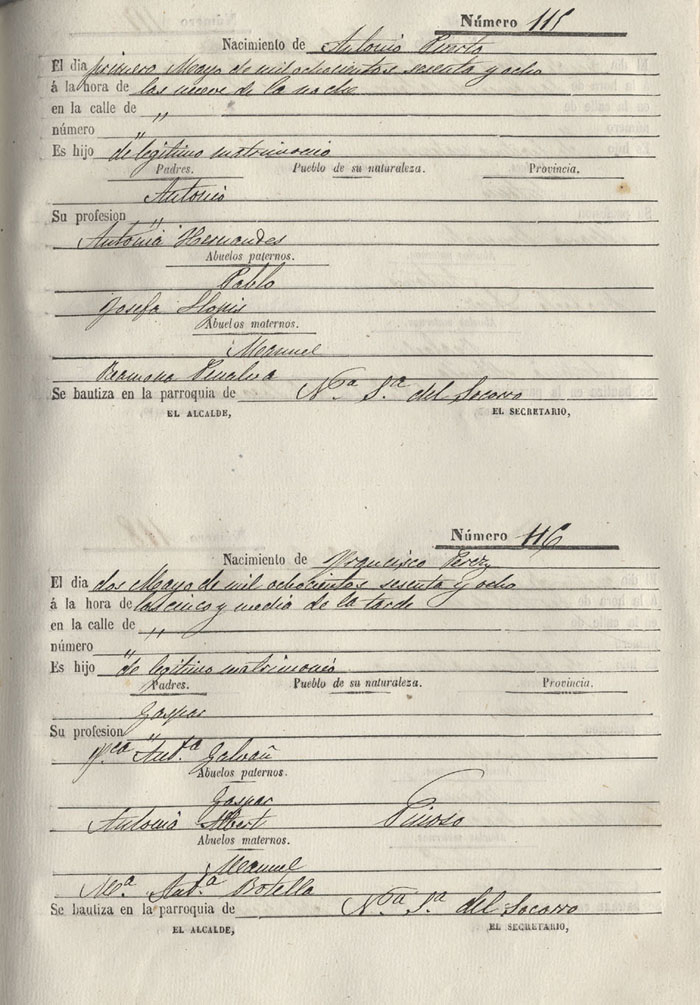 Número 115
Nacimiento de Antonio
El dia primero Mayo de mil ochocientos sesenta y ocho
á la hora de las nueve de la noche
en la calle de "
número "
Es hijo de legitimo matrimonio
Padres. Pueblo de su naturaleza. Provincia.
Antonio
Su profesion "
Antonia Hernandes
Abuelos paternos.
Pablo
Josefa Llopis
Abuelos maternos.
Manuel
Ramona Penalva
Se bautiza en la parroquia de Nª Sª del Socorro
EL ALCALDE, EL SECRETARIO,
Número 116
Nacimiento de Francisco Perez
El dia dos Mayo de mil ochocientos sesenta y ocho
á la hora de las cinco y media de la tarde
en la calle de "
número "
Es hijo de legitimo matrimonio
Padres. Pueblo de su naturaleza. Provincia.
Gaspar
Su profesion "
Antª Galvañ
Abuelos paternos.
Gaspar
Antonia Albert Pinoso
Abuelos maternos.
Manuel
Mª Antª Botella
Se bautiza en la parroquia de Nª Sª del Socorro
EL ALCALDE, EL SECRETARIO,